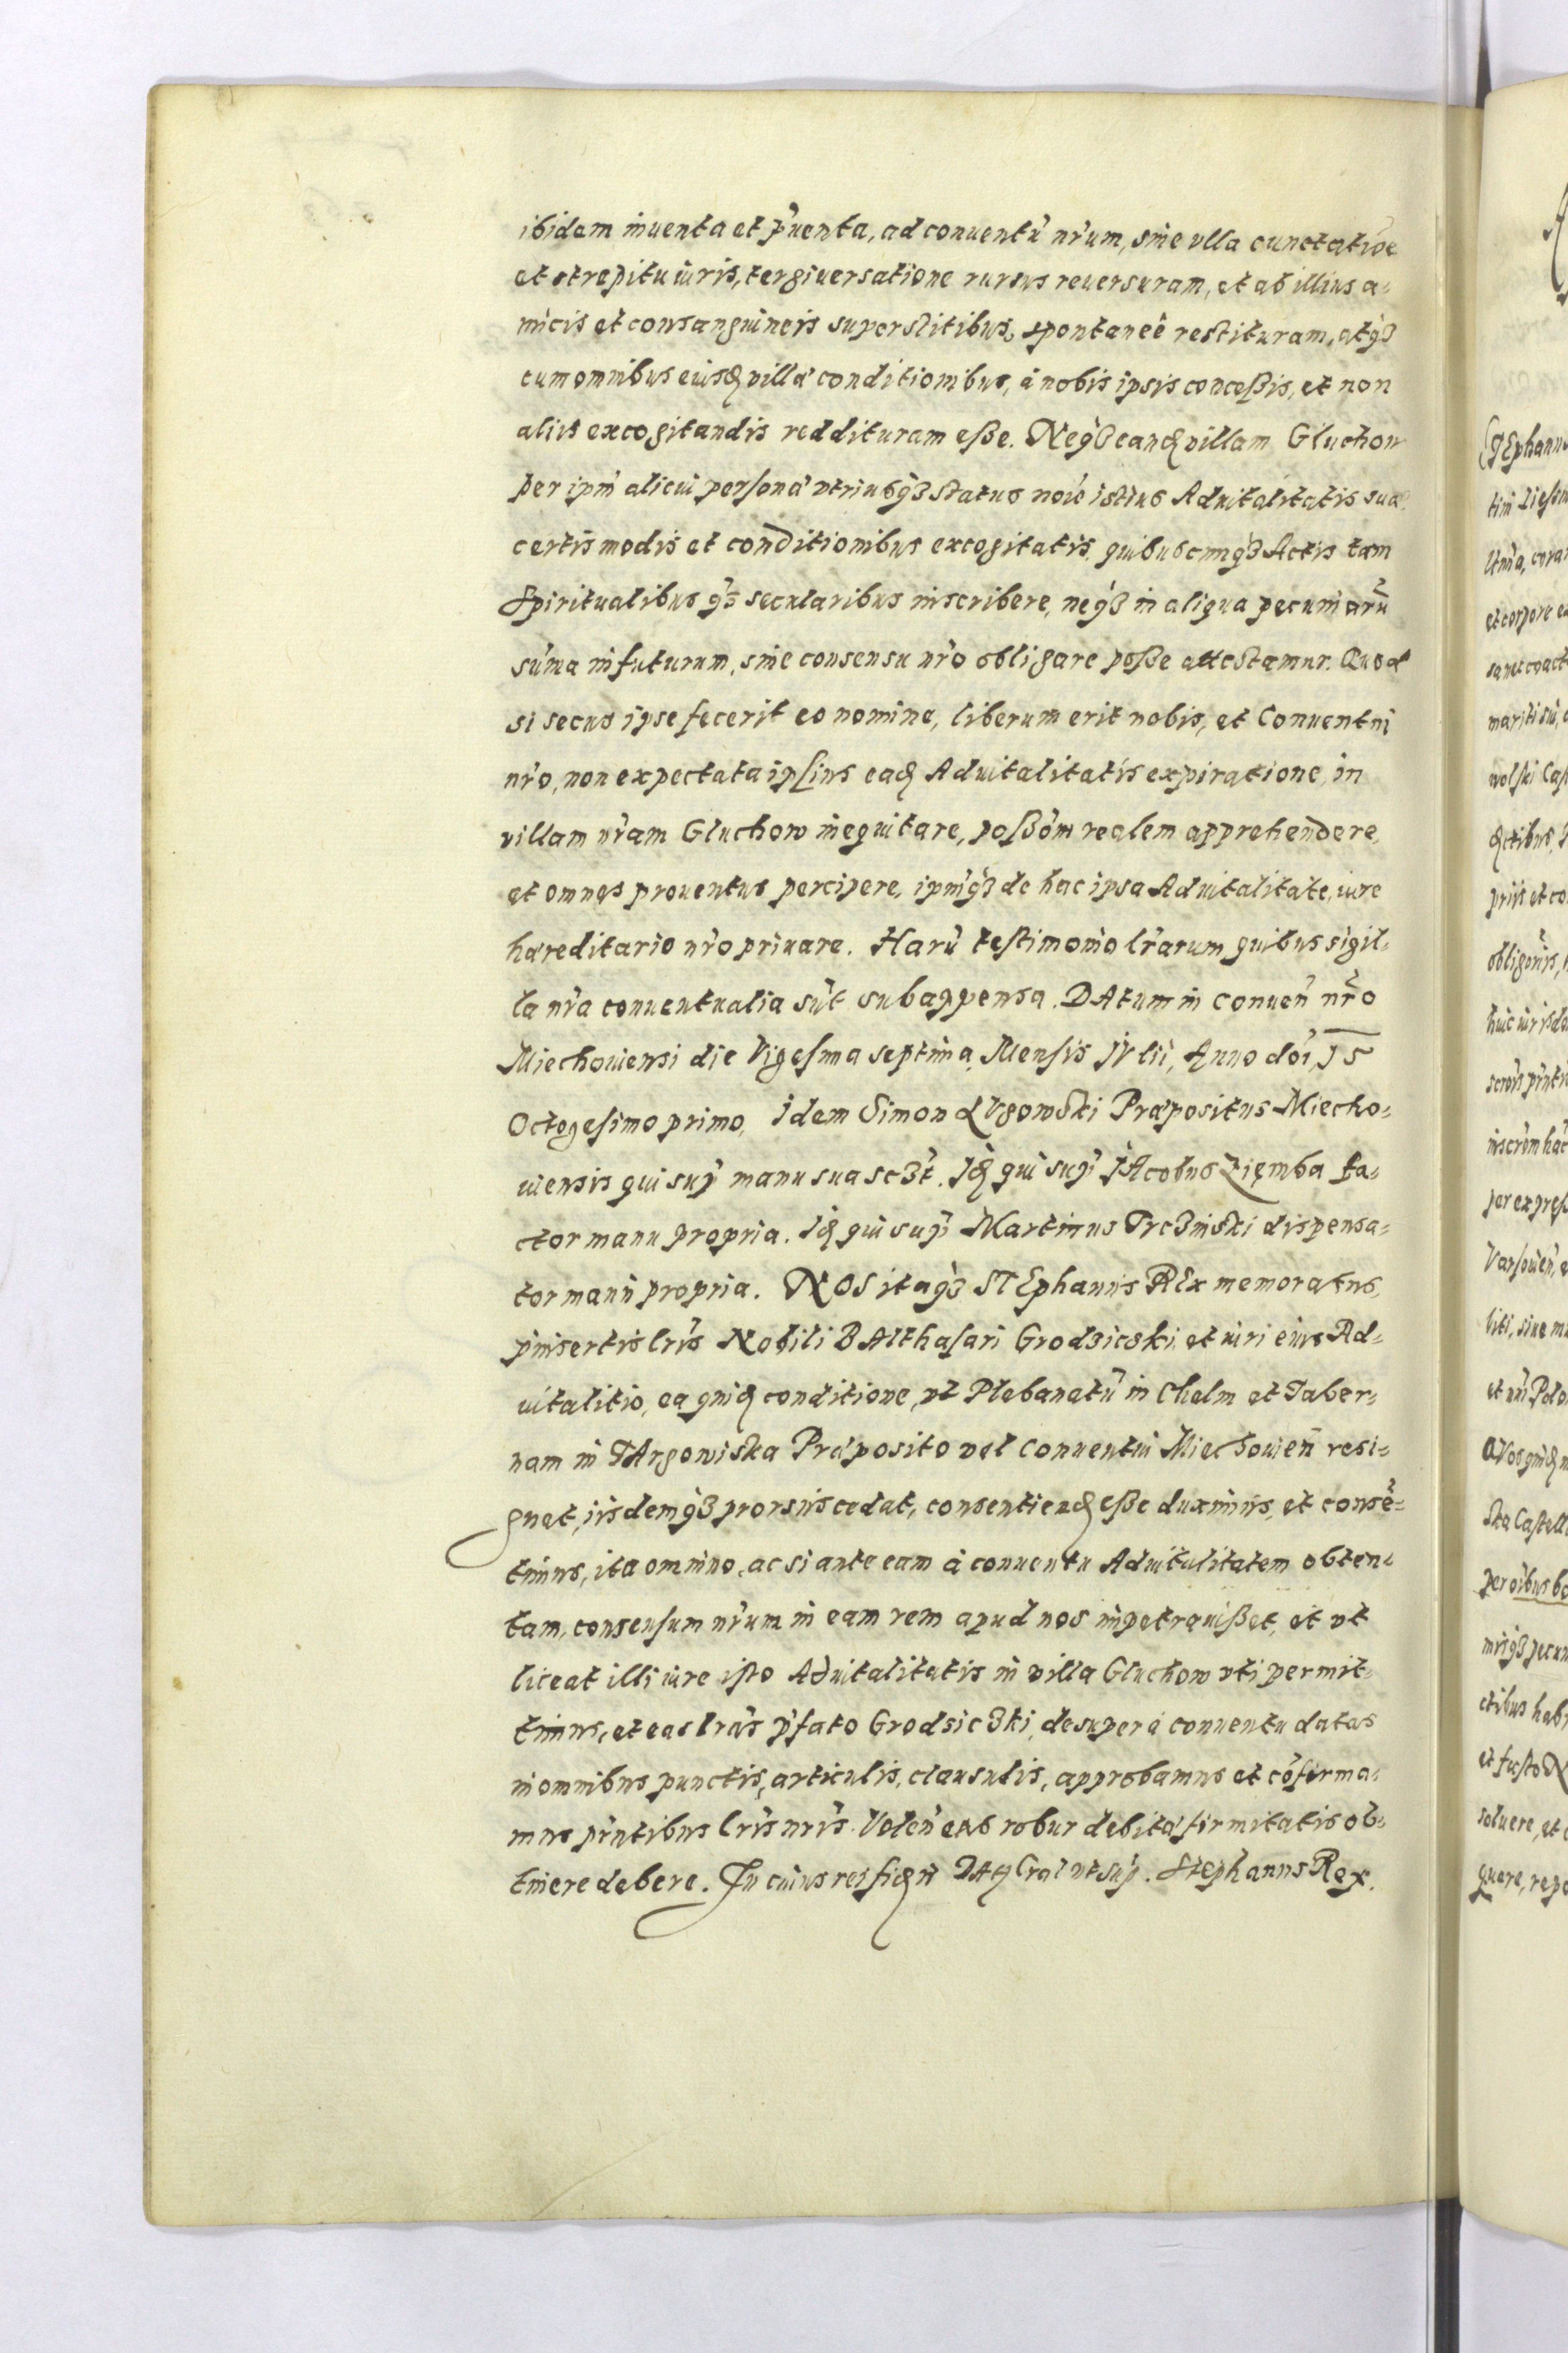 ibidem inuenta et p̃uenta, ad conuentũ nr̃um, sine vlla cunctatiõe
et strepitu iuris, tergiuersatione rursus reuersuram, et ab illius a-
micis et consanguineis superstitibus, spontaneè restituram, atqȝ
cum omnibus eiusđ villæ conditionibus, à nobis ipsis conceßis, et non
aliis excogitandis reddituram eße. Neqȝ eanđ villam Gluchow
per ipm̃ alicui personæ vtriusqȝ status noĩe istius Aduitalitatis suæ,
certis modis et conditionibus excogitatis, quibuscunqȝ Actis tam
Spiritualibus qȝ̃ secularibus inscribere, neqȝ in aliqua pecuniarũ
sũma in futurum, sine consensu nr̃o obligare poße attestamur. Quod
si secus ipse fecerit eo nomine, liberum erit nobis, et Conuentui
nr̃o, non expectata ipsius eađ Aduitalitatis expiratione, in
villam nr̃am Gluchow inequitare, poßõm realem apprehendere,
et omnes prouentus percipere, ipm̃qȝ de hac ipsa Aduitalitate, iure
hæreditario nr̃o priuare. Harũ testimonio lr̃arum quibus sigil-
la nr̃a conuentualia sũt subappensa. DAtum in conuen̄ nr̃o
Miechouiensi die Vigesima septima, Mensis JVlii, Anno dõi, 15
Octogesimo primo, Idem Simon LVgowski Præpositus Miecho-
uiensis qui sup̃ manu sua scȝt̃. Iđ qui sup̃ JAcobus Ziemba fa-
ctor manu propria. Iđ qui sup̃ Martinus Trcȝinski dispensa-
tor manu propria. NOS itaqȝ STEphanus REx memoratus,
p̃insertis lr̃is Nobili BAlthasari Grodȝicski, et iuri eius Ad-
uitalitio, ea quiđ conditione, vt Plebanatũ in Chelm et Taber-
nam in TArgowiska Præposito vel conuentui Miechouien̄ resi-
gnet, iisdemqȝ prorsus cedat, consentienđ eße duximus, et consẽ-
timus, ita omnino, ac si ante eam à conuentu Aduitalitatem obten-
tam, consensum nr̃um in eam rem apud nos impetrauißet, et vt
liceat illi iure isto Aduitalitatis in villa Gluchow vti permit-
timus, et eas lr̃as p̃fato Grodsicȝki, desuper à conuentu datas
in omnibus punctis, articulis, clausulis, approbamus et cõfirma-
mus p̃ntibus lr̃is nr̃is. Volen̄ eas robur debitæ firmitatis ob-
tinere debere. In cuius rei fiđ ut sup̃. Stephanus Rex.